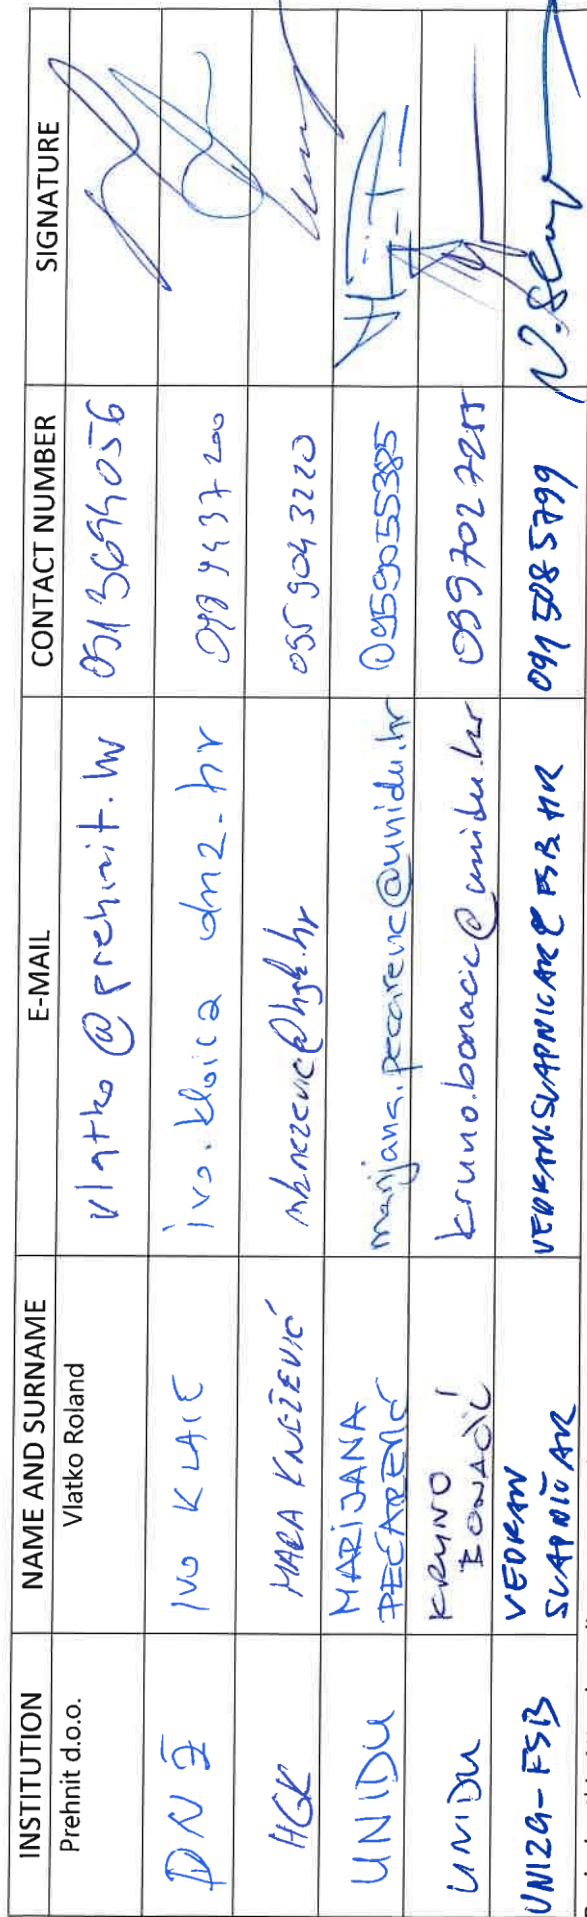 INSTITUTION NAME AND SURNAME E-MAIL CONTACT NUMBER SIGNATURE
Prehnit d.o.o. Vlatko Roland vlatko@prehnit.hr 0913694056
IVO KLAIĆ ivo.klaic@
HGK MARA KNEŽEVIĆ mknezevic@hgk.hr 0959043220
UNIDU MARIJANA PEĆAREVIĆ marijana.pecarevic@unidu.hr 0959055385
UNIDU KRUNO BONAČIĆ kruno.bonacic@unidu.hr
UNIZG-FSB VEDRAN SLAPNIČAR VEDRAN.SLAPNICAR@FSB.HR 091 5085799